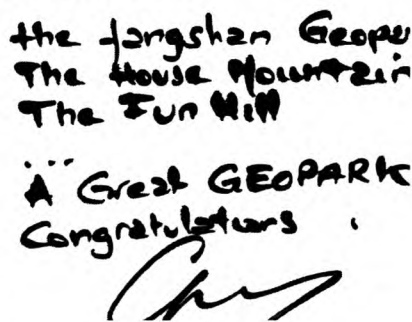 the Fangshan Geopa
The House Mountain
The Fun Hill
...
A Great GEOPARK
Congratulations !